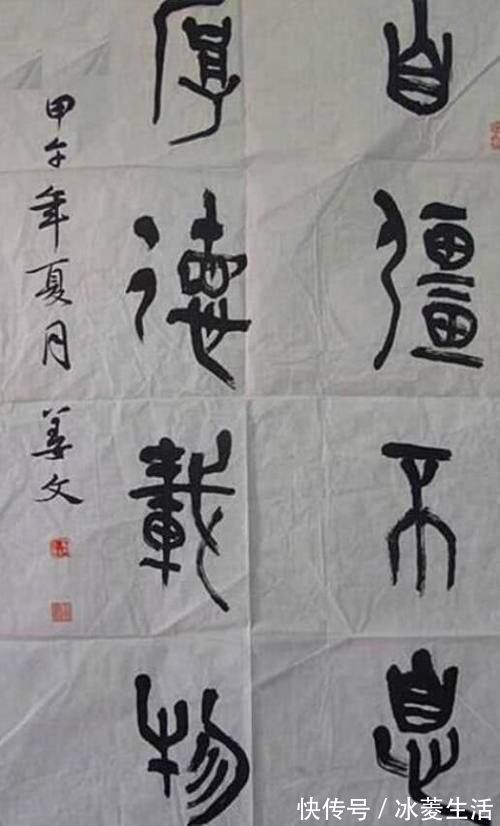 自彊不息
厚德載物
甲午年夏月 姜文
快传号／冰菱生活